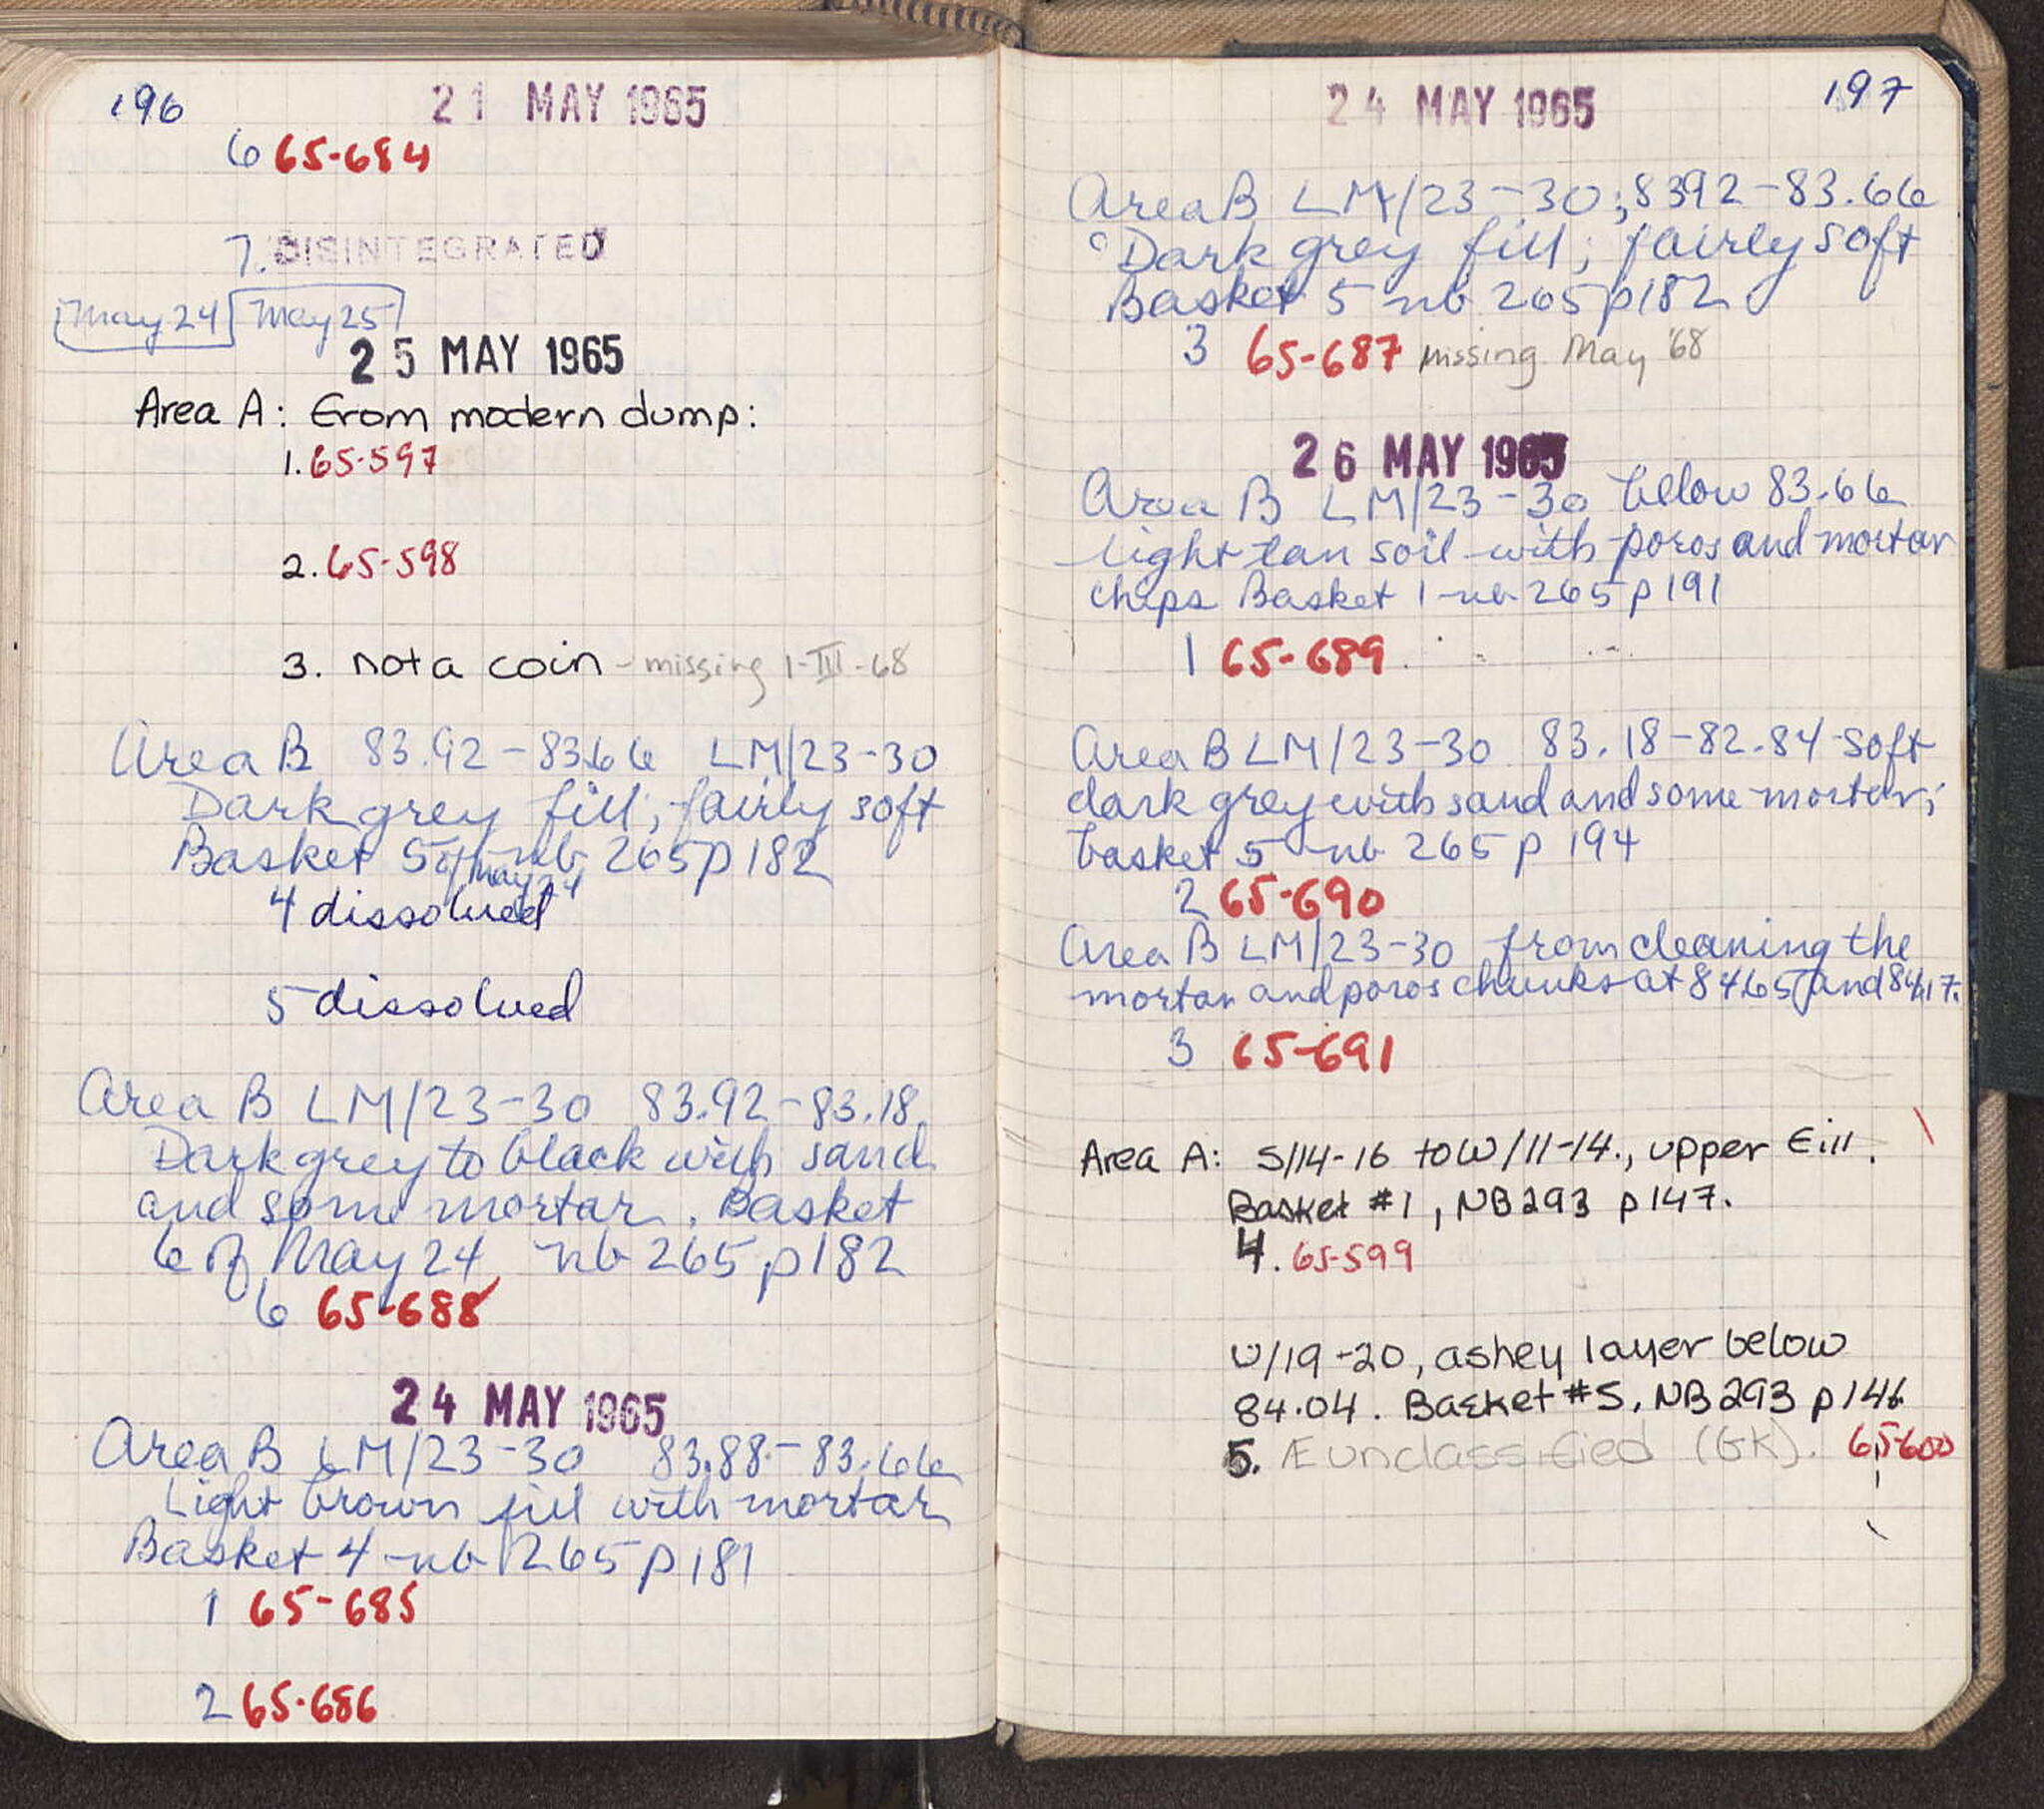 196
21 MAY 1965
6 65-684
7. DISINTEGRATED
May 24 May 25
25 MAY 1965
Area A: From modern dump:
1. 65-597
2. 65-598
3. not a coin - missing 1-III-68
Area B 83.92-83.66 LM/23-30
Dark grey fill; fairly soft
Basket 5 of May 24 nb 265 p 182
4 dissolved
5 dissolved
Area B LM/23-30 83.92-83.18
Dark grey to black with sand
and some mortar. Basket
6 of May 24 nb 265 p 182
6 65-688
24 MAY 1965
Area B LM/23-30 83.88-83.66
Light brown fill with mortar
Basket 4 nb 265 p 181
1 65-685
2 65-686
24 MAY 1965
197
Area B LM/23-30; 8392-83.66
Dark grey fill; fairly soft
Basket 5 nb 265 p182
3 65-687 missing May '68
26 MAY 1965
Area B LM/23-30 below 83.66
light tan soil with poros and mortar
chips Basket 1 nb 265 p 191
1 65-689
Area B LM/23-30 83.18-82.84 soft
dark grey with sand and some mortar;
basket 5 nb 265 p 194
2 65-690
Area B LM/23-30 from cleaning the
mortar and poros chunks at 84.65 and 84.17.
3 65-691
Area A: S/14-16 to W/11-14., upper fill.
Basket #1, NB293 p147.
4. 65-599
U/19-20, ashey layer below
84.04. Basket #5, NB293 p146
5. Æ unclassified (GK). 65-600